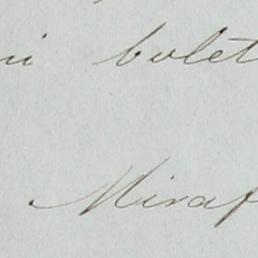 ni bolet
Miraf